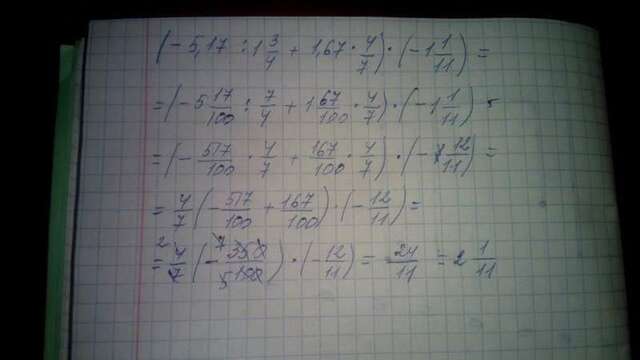 (-5,17 : 1 3/4 + 1,67 · 4/7) · (-1 1/11) =
= (-5 17/100 : 7/4 + 1 67/100 · 4/7) · (-1 1/11) =
= (-517/100 · 4/7 + 167/100 · 4/7) · (-12/11) =
= 4/7 (-517/100 + 167/100) · (-12/11) =
= 4/7 (-350/100) · (-12/11) = 24/11 = 2 1/11